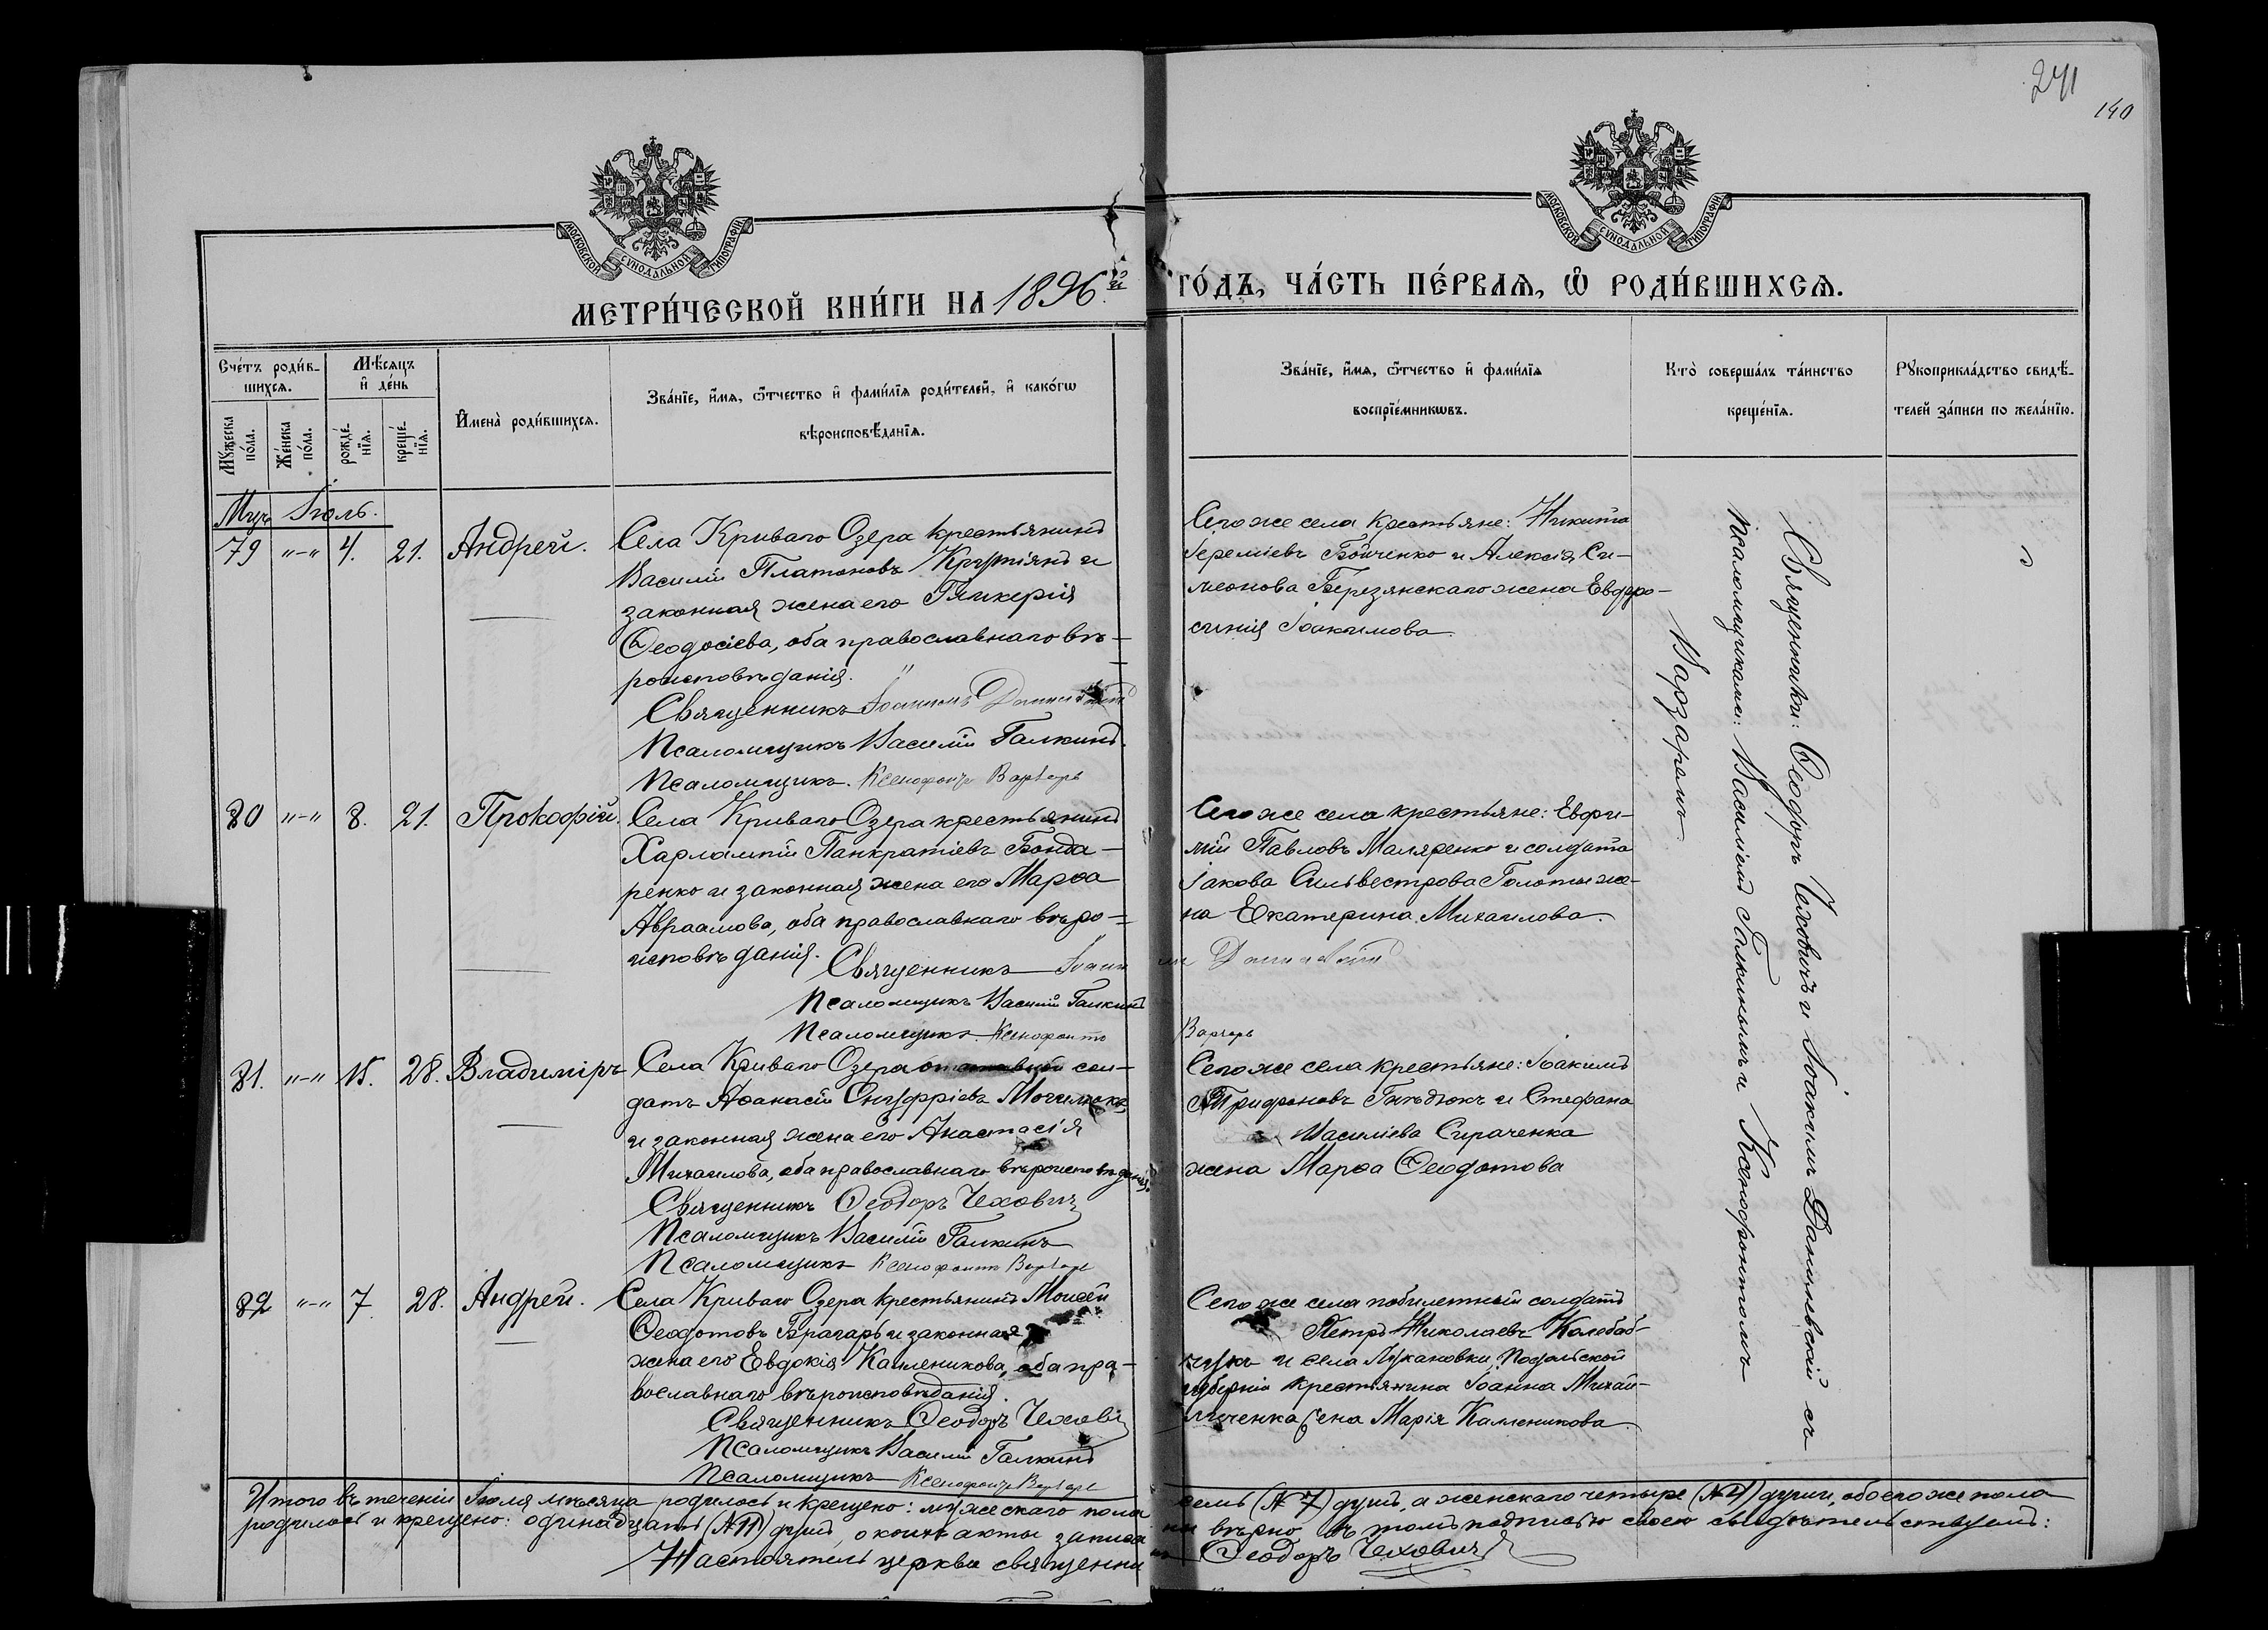 241
140
МОСКОВСКОЙ СѴНОДАЛЬНОЙ ТИПОГРАФІИ
МОСКОВСКОЙ СѴНОДАЛЬНОЙ ТИПОГРАФІИ
МЕТРИ́ЧЕСКОЙ КНИ́ГИ НА 1896й
ГО́ДЪ, ЧА́СТЬ ПЕ́РВАѦ, Ѿ РОДИ́ВШИХСѦ.
Сче́тъ роди́в-
шихсѧ.
Мꙋ́жеска по́ла.
Же́нска по́ла.
Мѣ́сѧцъ
и҆ де́нь
рожде́-
нїѧ.
креще́-
нїѧ.
И҆мена̀ роди́вшихсѧ.
Зва́нїе, и҆́мѧ, ѻ҆́тчество и҆ фами́лїѧ роди́телей, и҆ како́гѡ
вѣроисповѣ́данїѧ.
Зва́нїе, и҆́мѧ, ѻ҆́тчество и҆ фами́лїѧ
воспрїе́мникѡвъ.
Кто̀ соверша́лъ та́инство
креще́нїѧ.
Рꙋкоприкла́дство свидѣ́-
телей за́писи по жела́нїю.
Мцъ Іюль.
79 "-" 4. 21. Андрей.
Села Криваго Озера крестьянинъ
Василій Платоновъ Крутіянъ и
законная жена его Гликерія
Ѳеодосіева, оба православнаго вѣ-
роисповѣданія.
Священникъ Іоакимъ
Псаломщикъ Василій Галкинъ.
Псаломщикъ. Ксенофонтъ Варзарь
Сего же села крестьяне: Никита
Іереміевъ Бойченко и Алексія Си-
меонова Березянскаго жена Евфро-
синія Іоакимова.
80 "-" 8. 21. Прокофій.
Села Криваго Озера крестьянинъ
Харлампій Панкратіевъ Бонда-
ренко и законная жена его Марѳа
Авраамова, оба православнаго вѣро-
исповѣданія.
Священникъ Іоаким
Псаломщикъ Василій Галкинъ
Псаломщикъ Ксенофонтъ Варзарь
Сего же села крестьяне: Евфи-
мій Павловъ Маляренко и солдата
Іакова Сильвестрова Голоты же-
на Екатерина Михаилова.
81. "-" 15. 28. Владиміръ
Села Криваго Озера отставной сол-
датъ Аѳанасій Онуфріевъ
и законная жена его Анастасія
Михаилова, оба православнаго вѣроисповѣданія.
Священникъ Ѳеодоръ Чеховичъ
Псаломщикъ Василій Галкинъ
Псаломщикъ Ксенофонтъ Варзарь
Сего же села крестьяне: Іоакимъ
Трифоновъ Гнѣдюкъ и Стефана
Василіева Сираченка
жена Марѳа Ѳеодотова
82 "-" 7. 28. Андрей.
Села Криваго Озера крестьянинъ Моисей
Ѳеодотовъ Брагарь и законная
жена его Евдокія Каллениковa, оба пра-
вославнаго вѣроисповѣданія.
Священникъ Ѳеодоръ Чеховичъ
Псаломщикъ Василій Галкинъ
Псаломщикъ Ксенофонтъ Варзарь
Сего же села побилетный солдатъ
Петръ Николаевъ Колобаб-
чукъ и села Лукановки, Подольской
губерніи крестьянина Іоанна Михай-
личенка жена Марія Калленикова.
Священники: Ѳеодоръ Чеховичъ и Іоакимъ Данилевскій съ
псаломщиками: Василіемъ Галкинымъ и Ксенофонтомъ
Варзаремъ.
Итого въ теченіи Іюля мѣсяца родилось и крещено: мужескаго пола семь (№ 7) душъ, а женскаго четыре (№ 4) души, обоего же пола
родилось и крещено: одинадцать (№ 11) душъ, о коихъ акты записаны вѣрно въ томъ подписью своею свидѣтельствуемъ:
Настоятель церкви священникъ Ѳеодоръ Чеховичъ